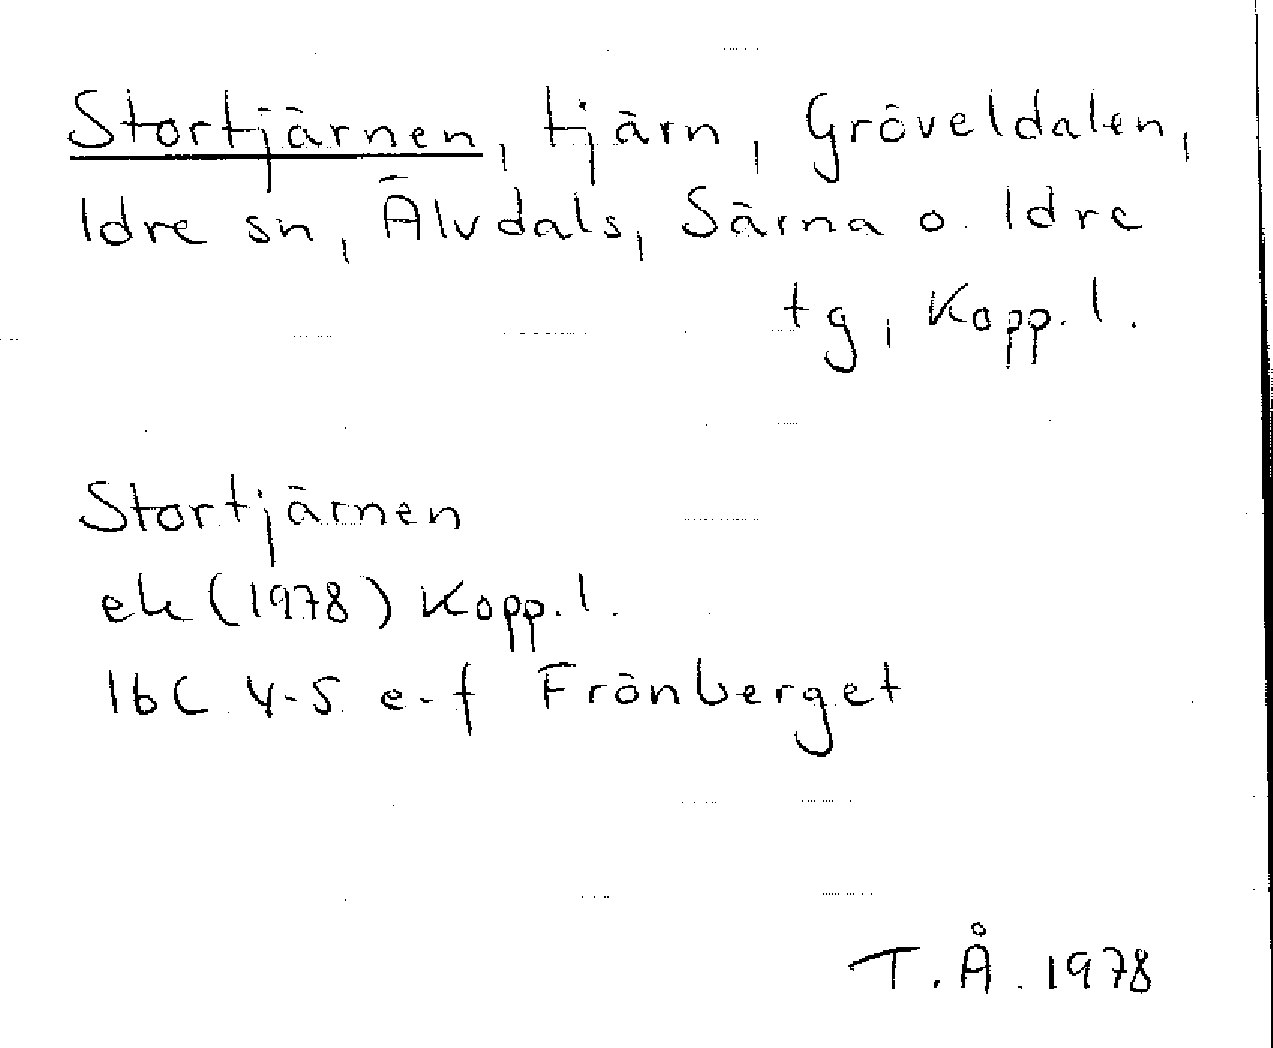 Stortjärnen, tjärn, Gröveldalen,
Idre sn, Älvdals, Särna o. Idre
tg, Kopp. l.
Stortjärnen
ek (1978) Kopp. l.
16C 4-5 e-f Frönberget
T. Å. 1978